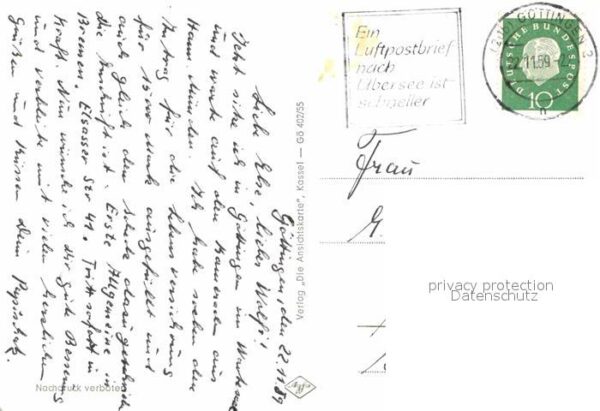 Göttingen, den 22.11.59
Liebe Else, lieber Wolfi!
Jetzt sitze ich in Göttingen im Wartesaal
und warte auf den Kameraden aus
Hann. Münden. Ich habe soeben den
Antrag für die Lebensversicherung
für 1500 Mark ausgefüllt und
auch gleich den
die Anschrift ist: Erste Allgemeine in
Bremen, Elsasser Str 41. Tritt sofort in
Kraft. Nun wünsche ich dir gute Besserung
und verbleibe mit vielen herzlichen
Grüßen und Küssen Dein
Nachdruck verboten
Verlag „Die Ansichtskarte", Kassel — Gö 402/55
Ein
Luftpostbrief
nach
Übersee ist
schneller
GÖTTINGEN 2
22.11.59
DEUTSCHE BUNDESPOST
10
Frau
privacy protection
Datenschutz